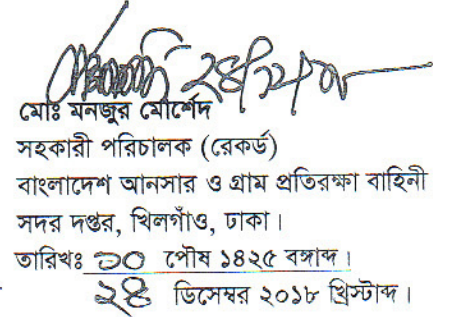 ২৪/১২/১৮
মোঃ মনজুর মোর্শেদ
সহকারী পরিচালক (রেকর্ড)
বাংলাদেশ আনসার ও গ্রাম প্রতিরক্ষা বাহিনী
সদর দপ্তর, খিলগাঁও, ঢাকা।
তারিখঃ ১০ পৌষ ১৪২৫ বঙ্গাব্দ।
২৪ ডিসেম্বর ২০১৮ খ্রিস্টাব্দ।